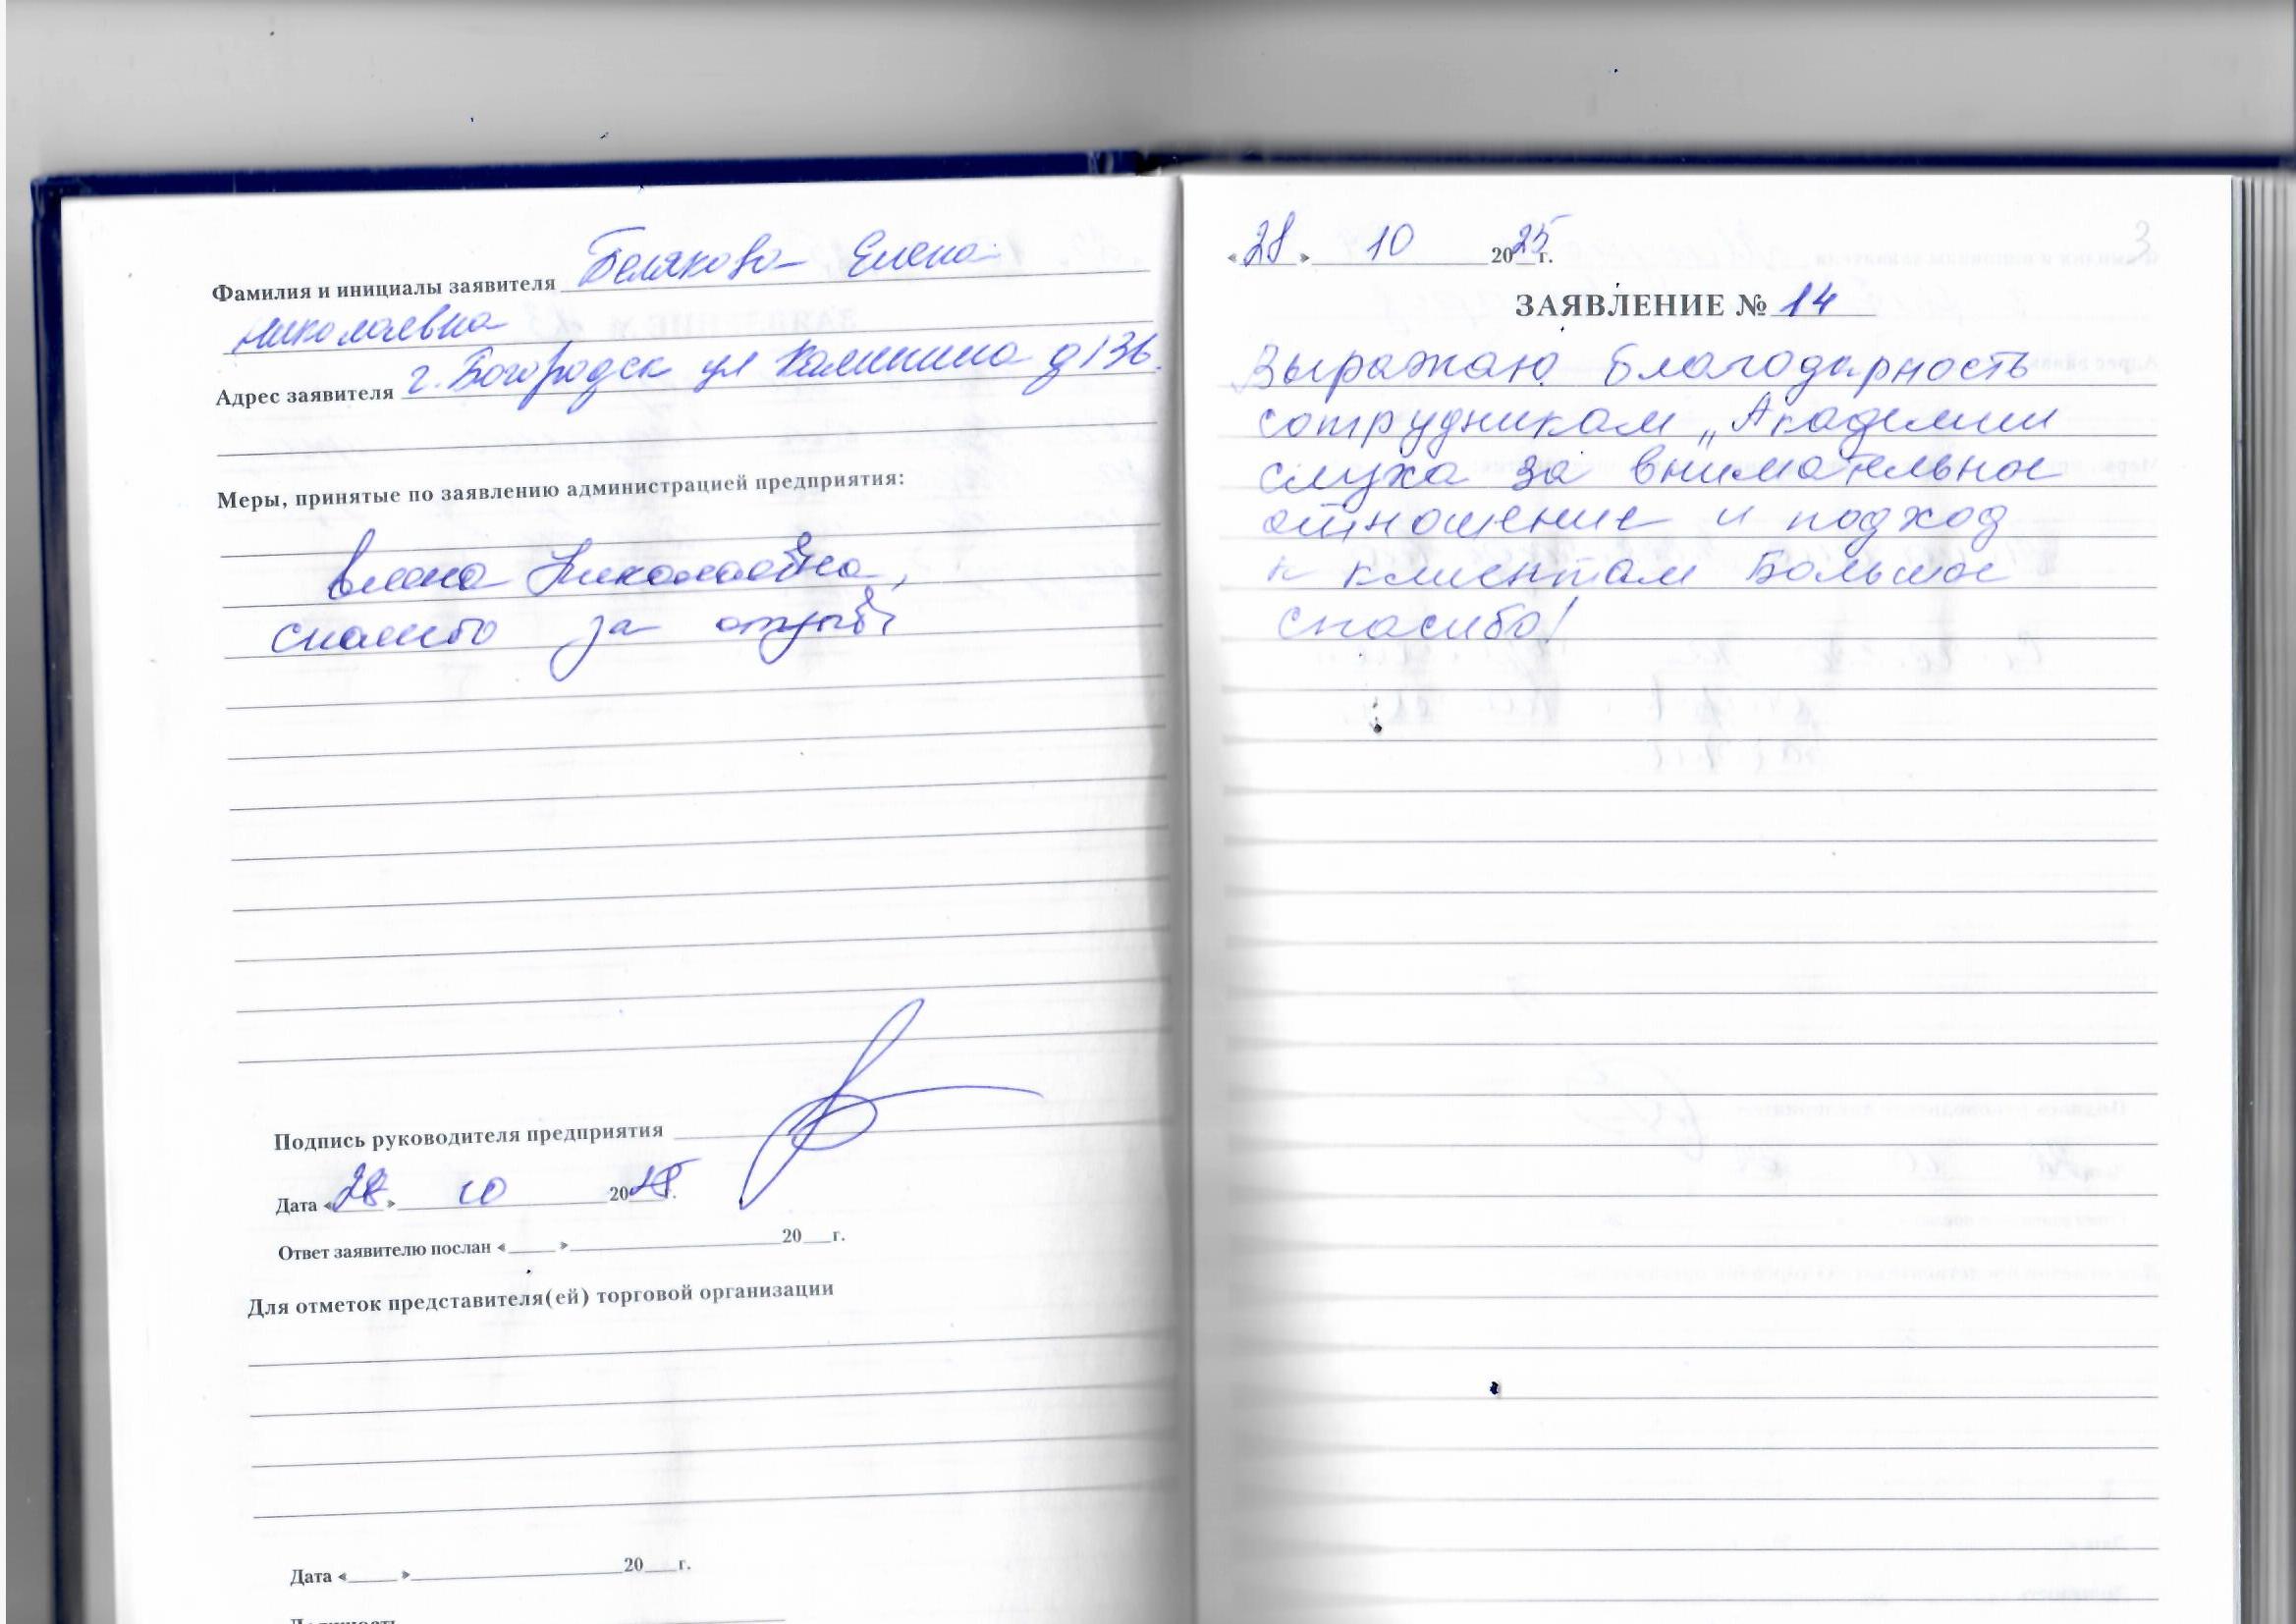 Фамилия и инициалы заявителя Белякова Елена
Николаевна
Адрес заявителя г. Богородск ул Калинина д 136.
Меры, принятые по заявлению администрацией предприятия:
Елена Николаевна,
спасибо за отзыв
Подпись руководителя предприятия
Дата «28» 10 2025 г.
Ответ заявителю послан «____» ____ 20__ г.
Для отметок представителя(ей) торговой организации
Дата «____» ____ 20__ г.
Должность
«28» 10 2025 г.
ЗАЯВЛЕНИЕ № 14
Выражаю благодарность
сотрудникам „Академии
слуха за внимательное
отношение и подход
к клиентам Большое
спасибо!